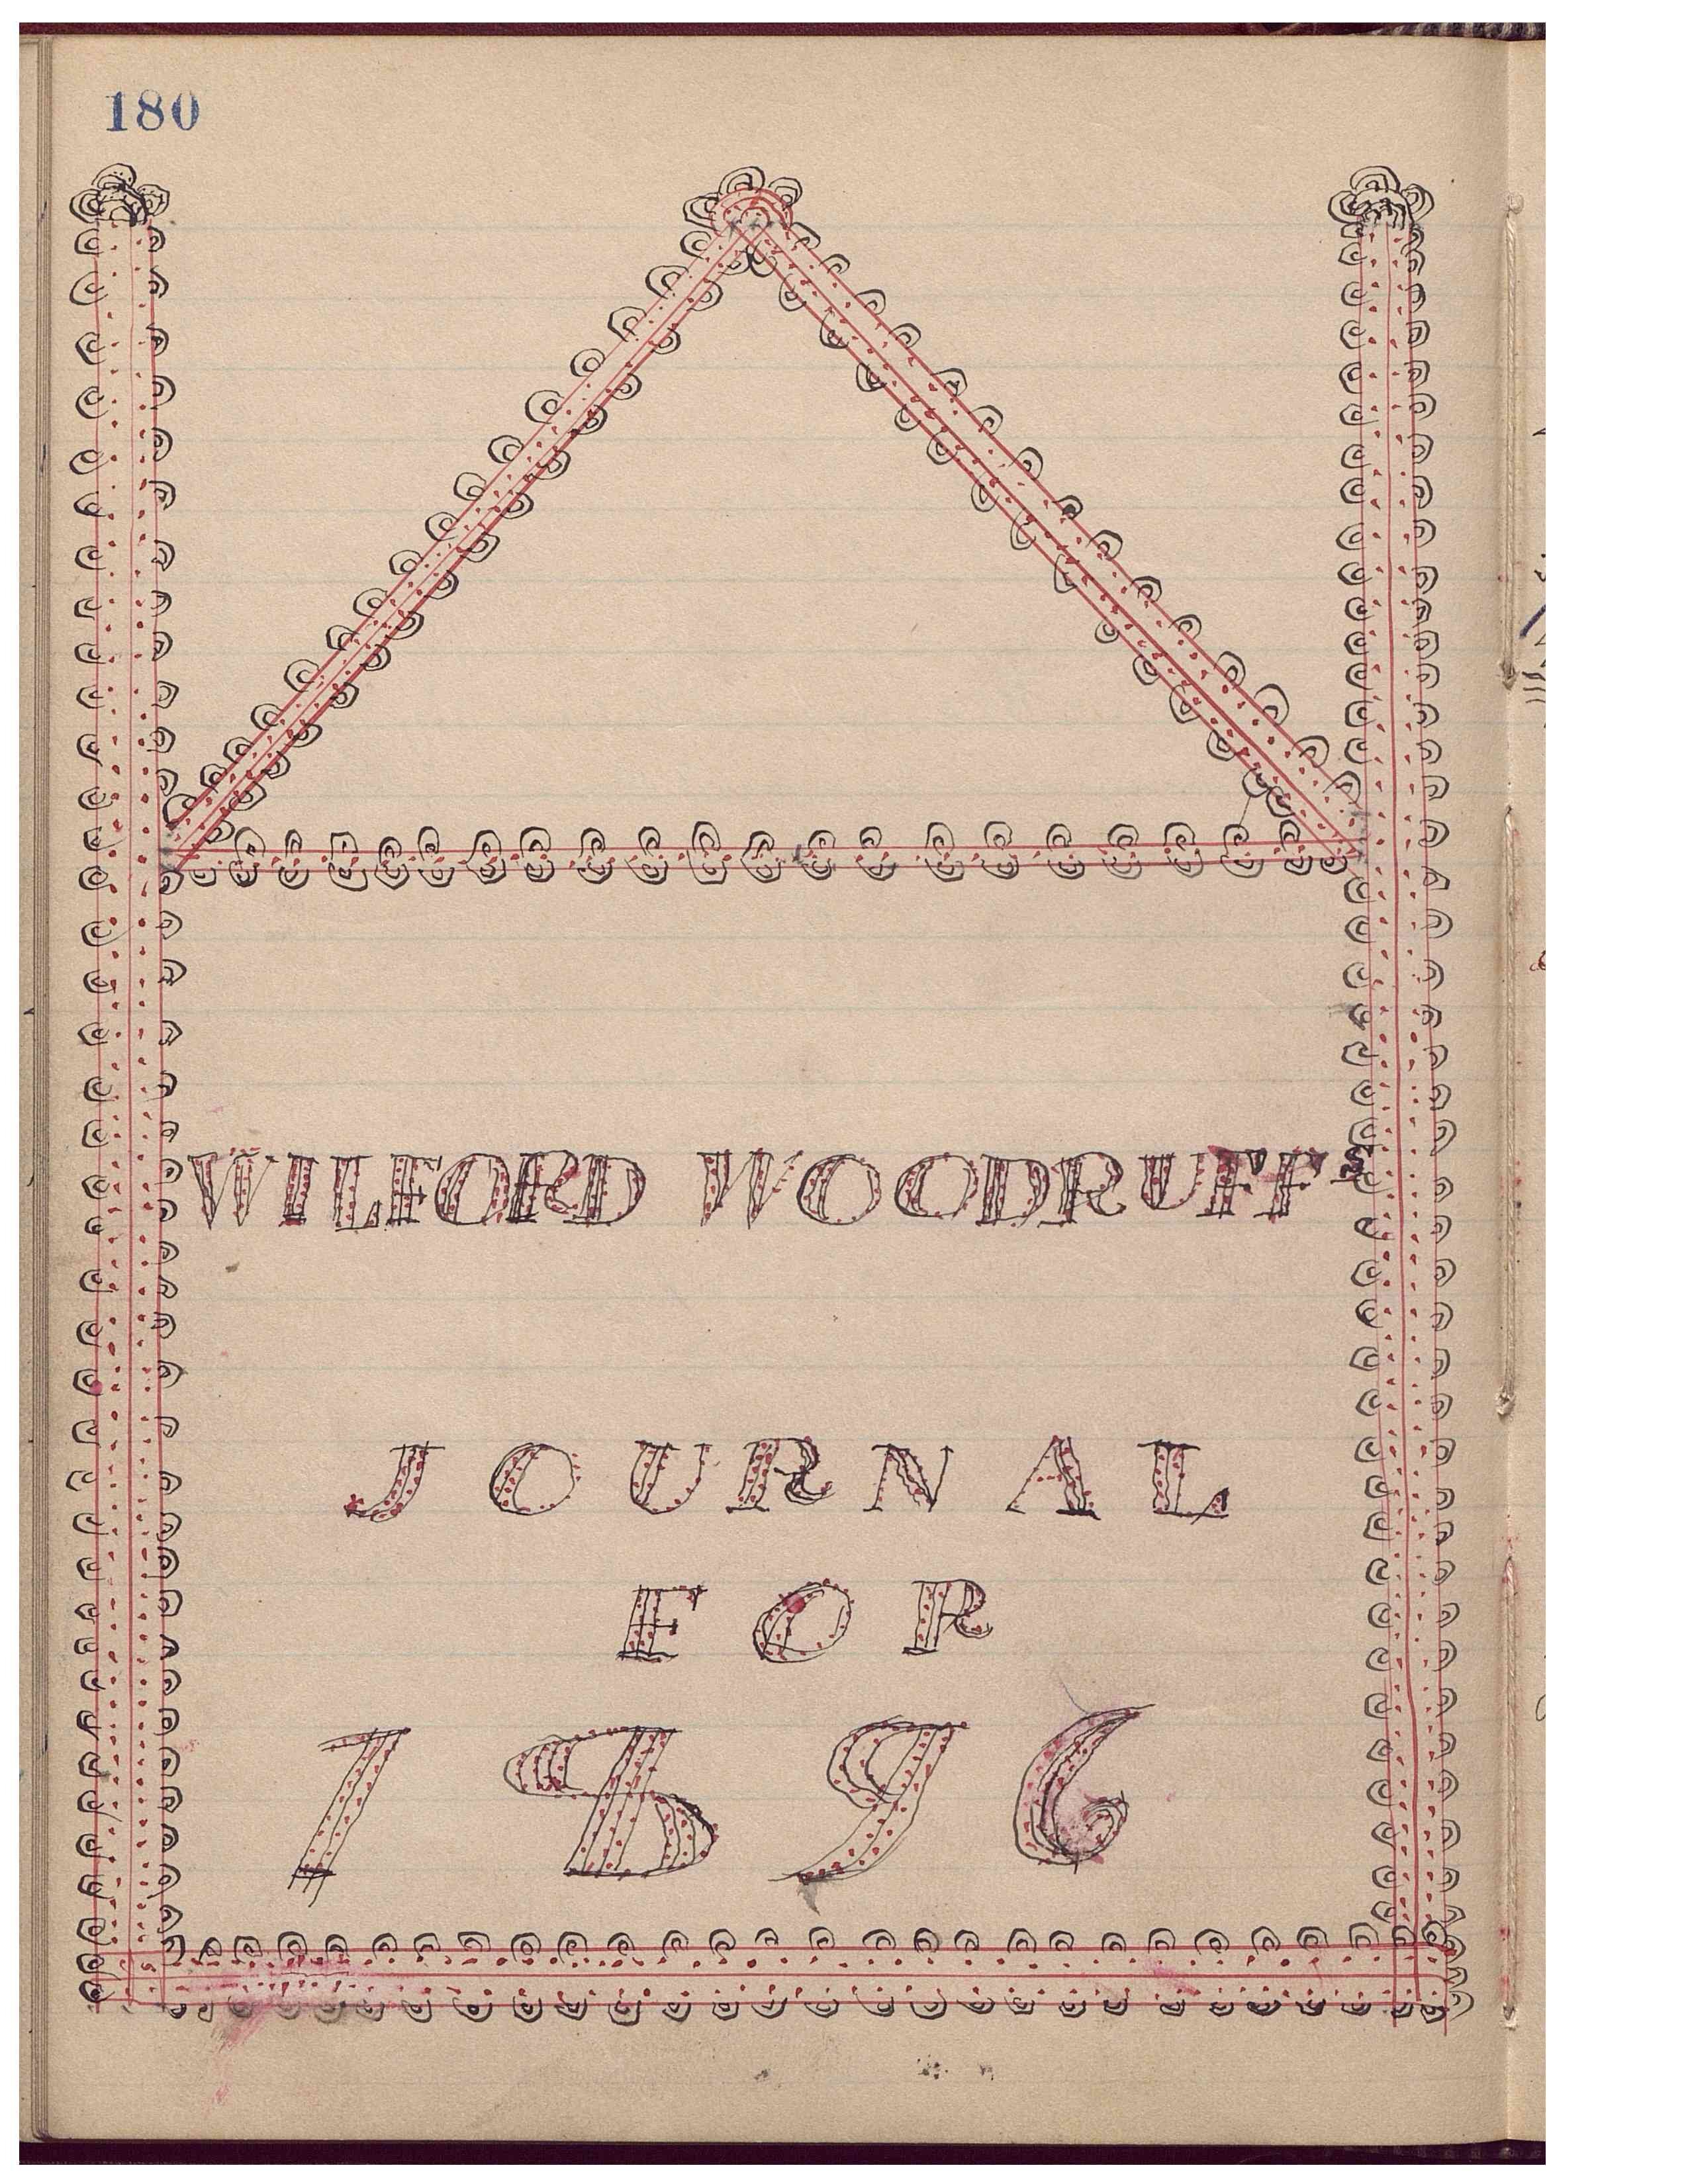 180
WILFORD WOODRUFF'S
JOURNAL
FOR
1896